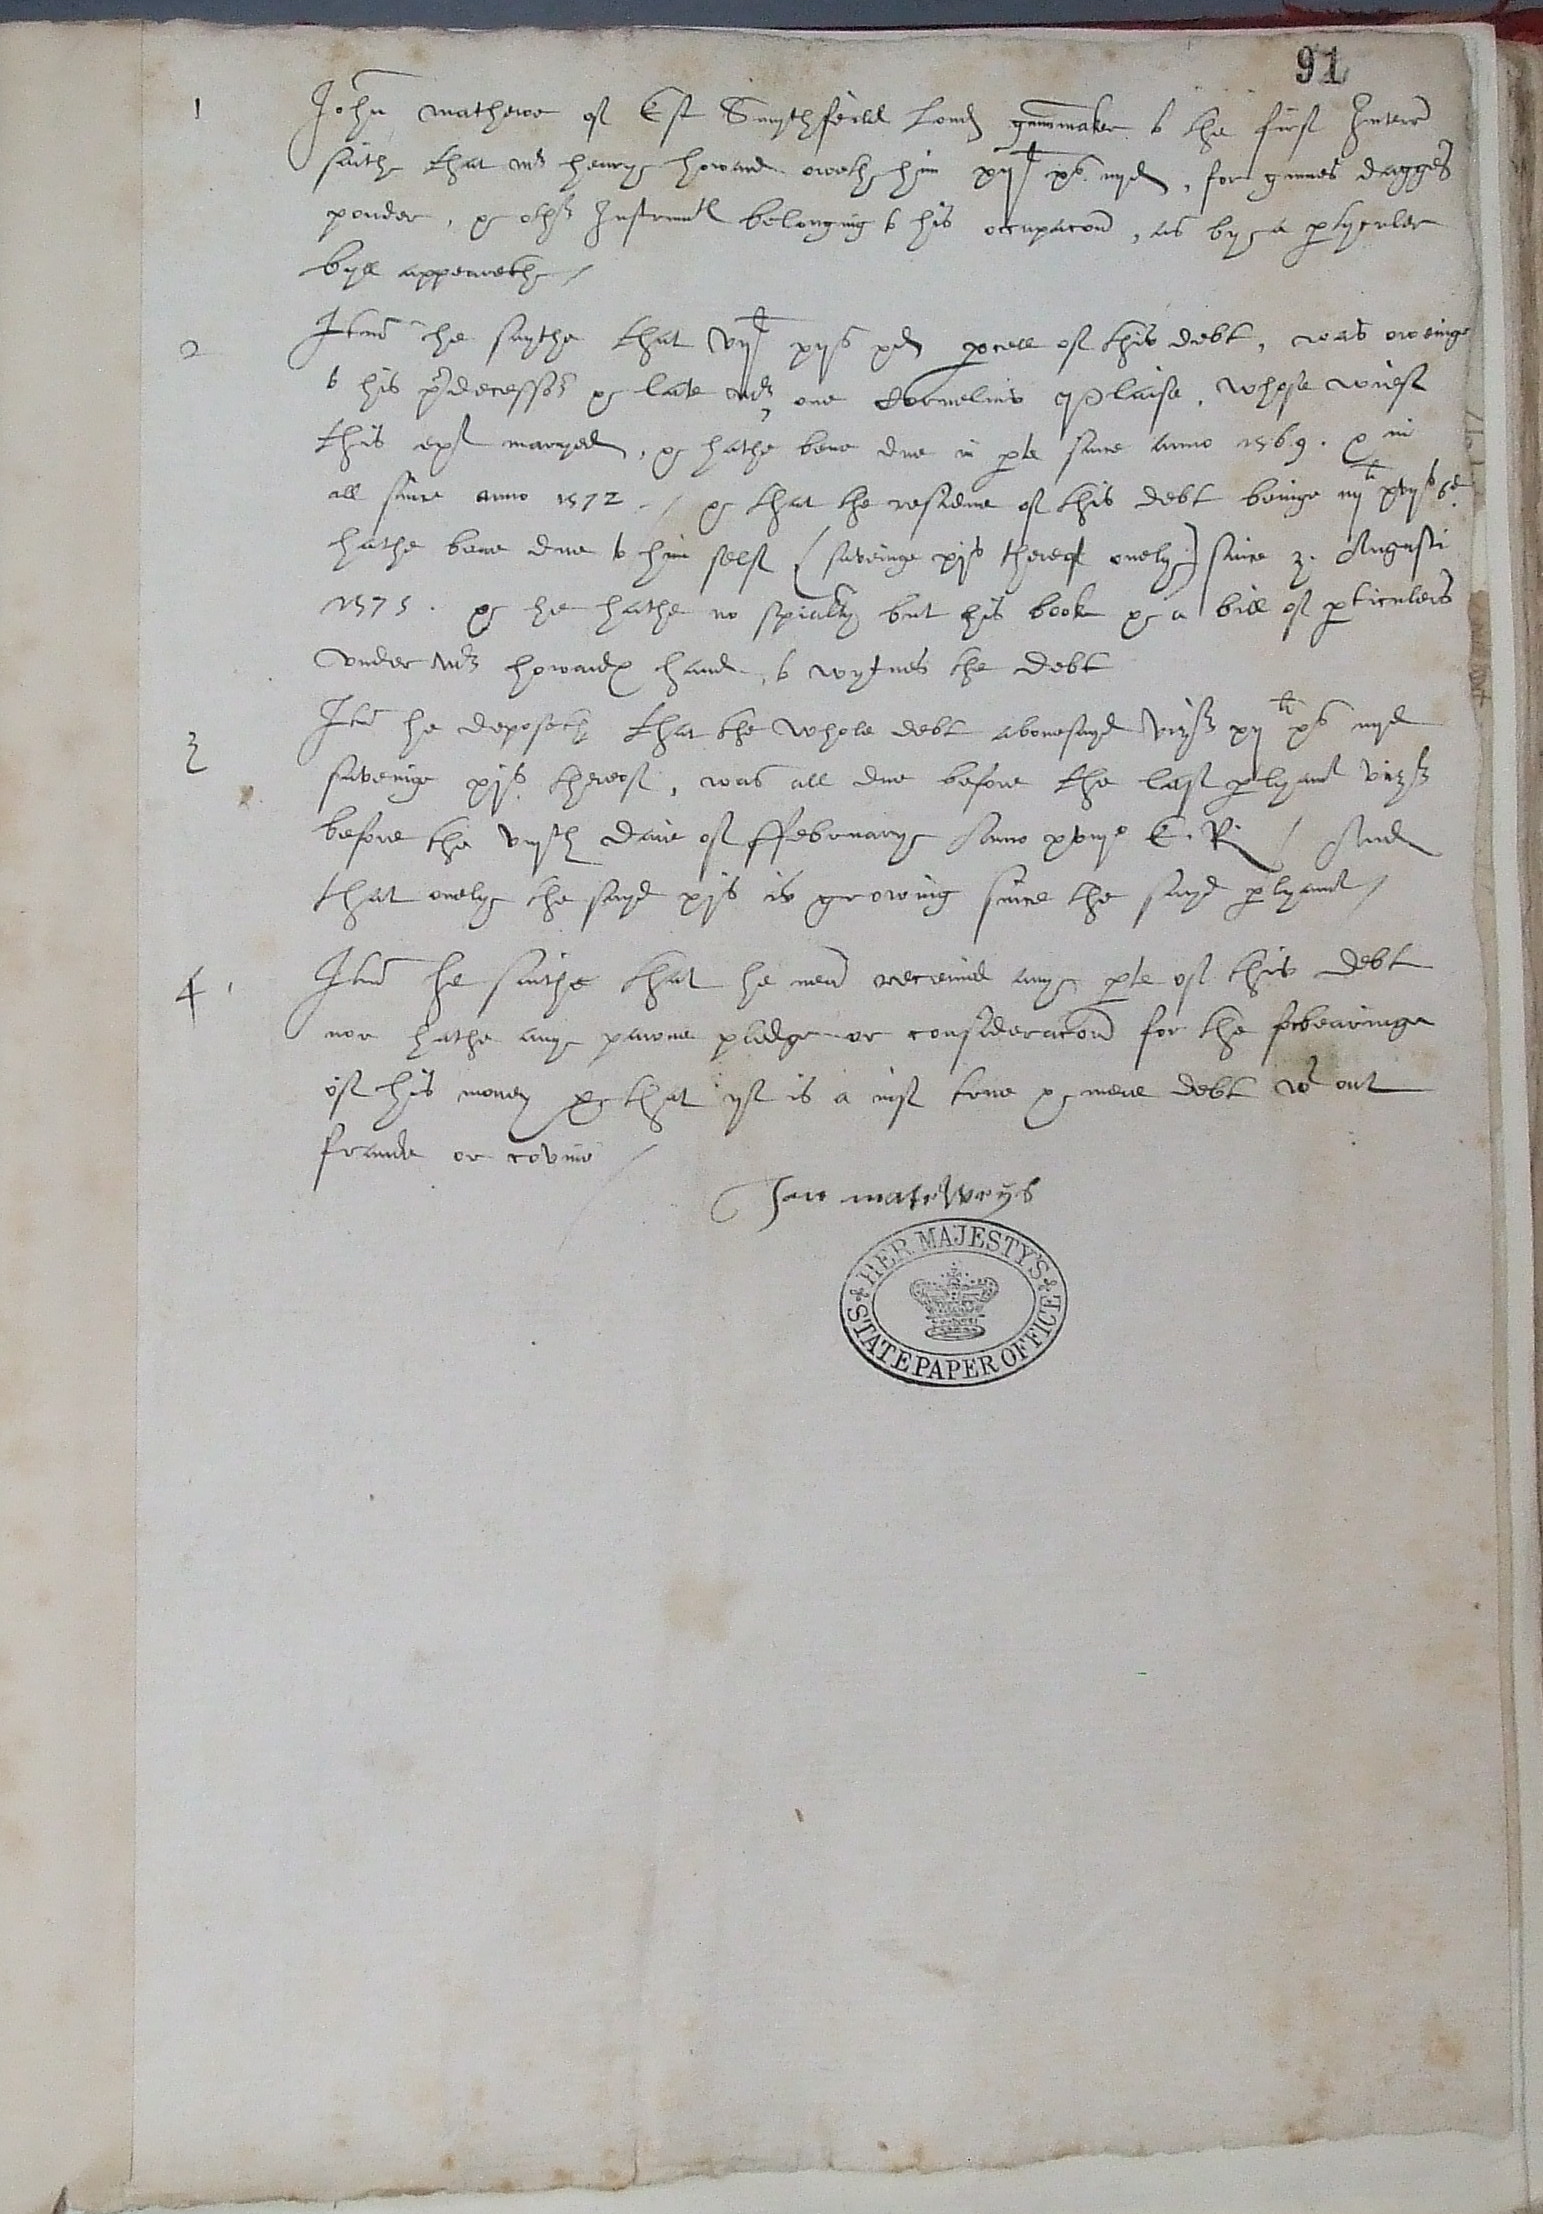 91
1 John mathewe of Est Smythfeild Lond gunnmaker to the first Interr
saith that mr henry howard oweth him xijli xvs iiijd, for gunnes dagges
pouder, & other Instrumtes belonging to his occupacon, as by a ptyculer
byll appeareth /
2 Itm he saythe that vijli xvijs xd pcell of this debt, was oweinge
to his predecessor & late mr, one Cornelius laise, whose wiefe
this ext maryed, & hathe bene due in pte since anno 1569. & in
all since anno 1572 / & that the residue of this debt beinge iiijli xvijs 6d
hathe bene due to him self (saveinge xjs thereof onely) since 3. Augusti
1575. & he hathe no spialty but his book & a bill of pticulers
vnder Mr howardes hand, to wytnes the debt
3 Itm he deposeth that the whole debt abouesayd vizt xijli xvs iiijd
saveinge xjs thereof, was all due before the last plyamt vizt
before the viijth daie of ffebruary Anno xviijo E. R / And
that onely the sayd xjs is growing since the sayd plyamt /
4 Itm he saithe that he neu receiued any pte of this debt
nor hathe any pawne pledge or consideracon for the forbearinge
of his money & that yt is a iust true & mere debt wt out
fraude or covine /
Jan matheWeijs
HER MAJESTY'S STATE PAPER OFFICE